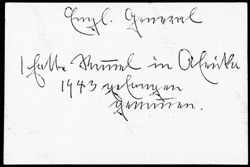 Engl. General
hatte Rommel in Afrika
1943 gefangen
genommen.